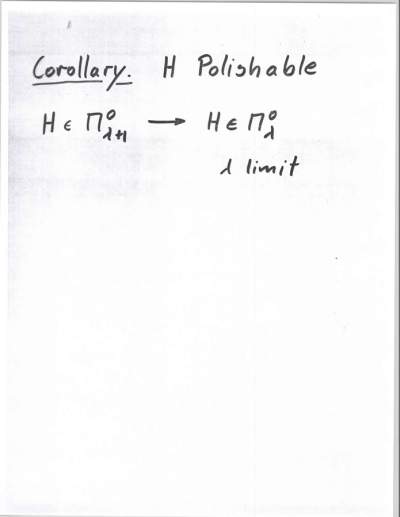 Corollary. H Polishable
H ∈ Π⁰_{λ+1} ⟶ H ∈ Π⁰_λ
λ limit